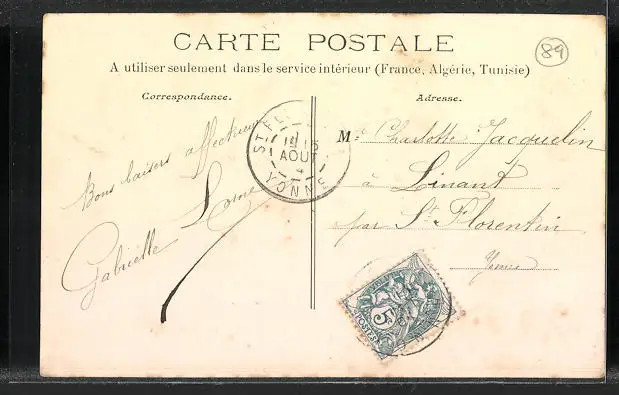 CARTE POSTALE
89
A utiliser seulement dans le service intérieur (France, Algérie, Tunisie)
Correspondance.
Adresse.
Bons baisers affectueux
Gabrielle
ST FL
15
AOUT
4
YONNE
M Charlotte Jacquelin
à Linant
par St Florentin
Yonne
5
POSTES